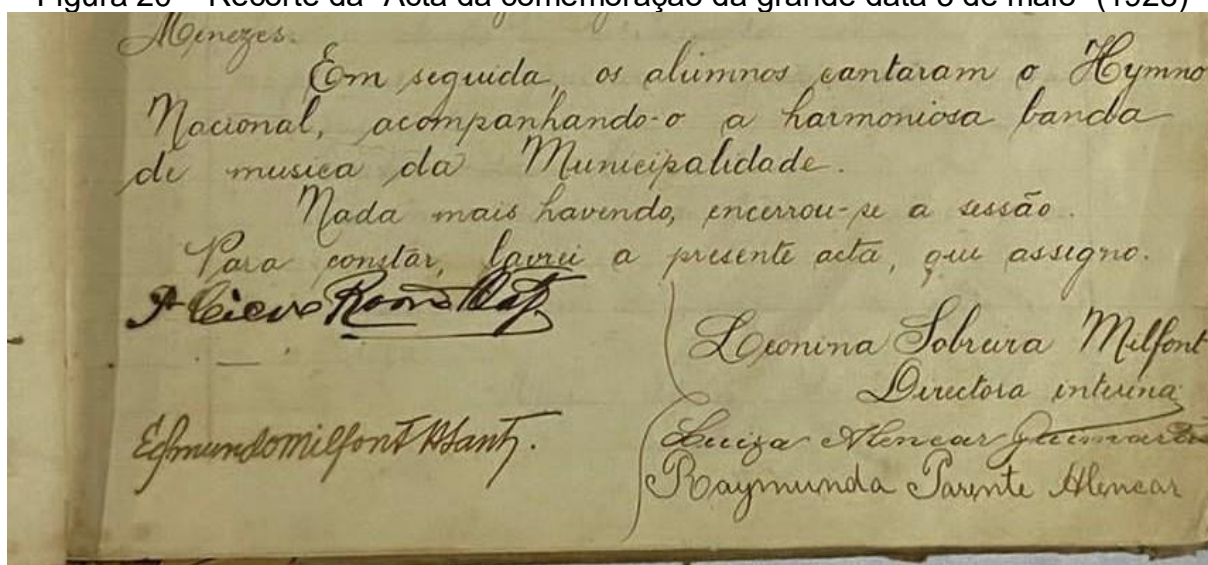 Figura 20 – Recorte da "Acta da comemoração da grande data 3 de maio" (1925)
Menezes.
Em seguida, os alumnos cantaram o Hymno
Nacional, acompanhando-o a harmoniosa banda
de musica da Municipalidade.
Nada mais havendo, encerrou-se a sessão.
Para constar, lavrei a presente acta, que assigno.
Leonina Sobreira Milfont
Directora interina
Edmundo Milfont
Luiza Alencar Guimarães
Raymunda Parente Alencar